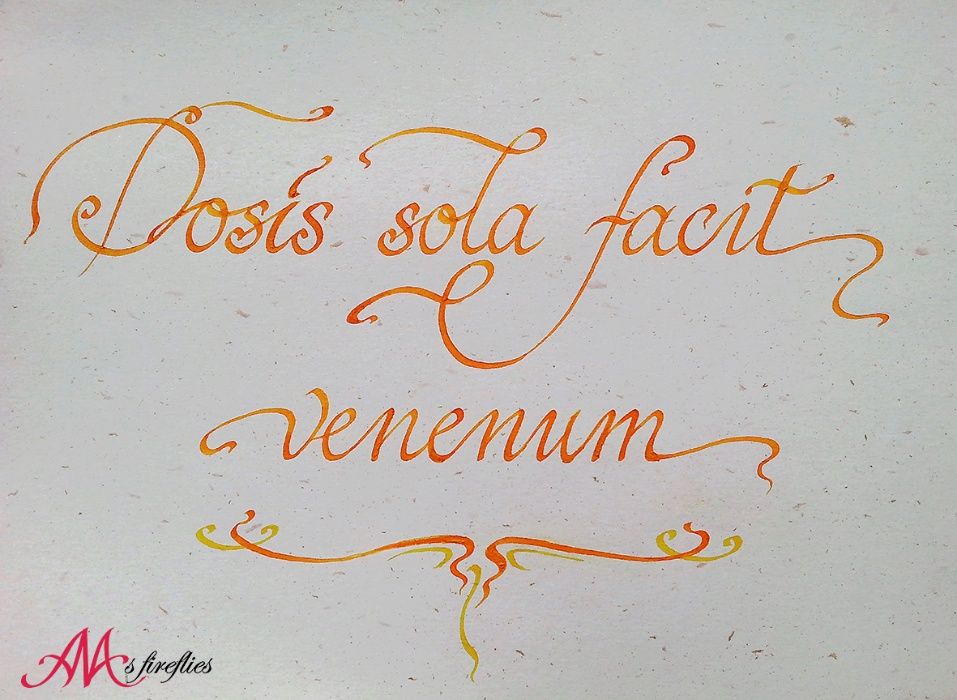 Dosis sola facit
venenum
AAA's fireflies